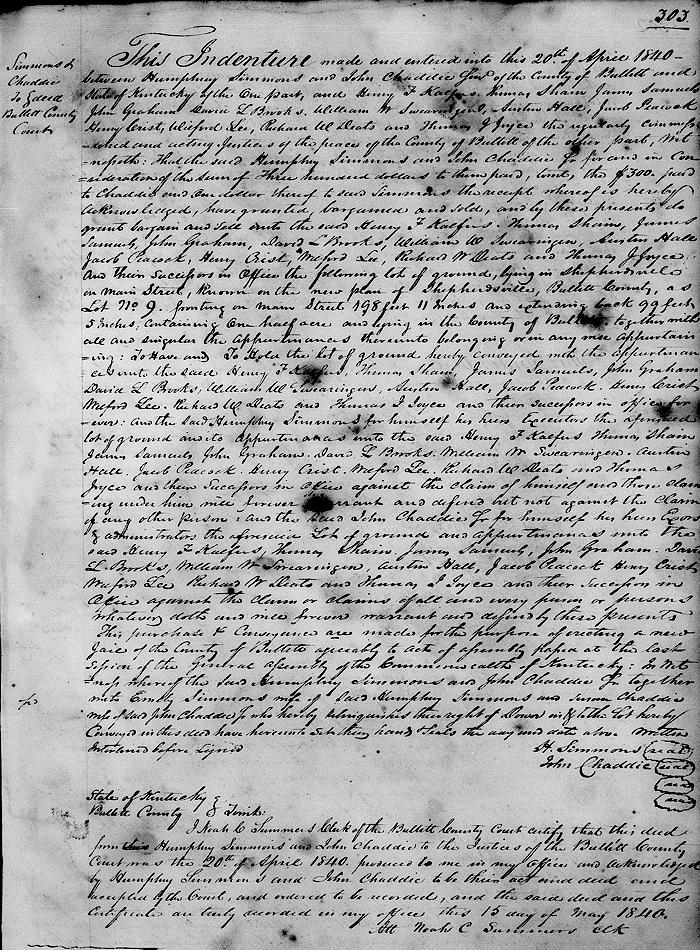 303.
Simmons &
Chaddic
To } deed
Bullitt County
Court
This Indenture made and entered into this 20th of April 1840 -
between Humphry Simmons and John Chaddic Jr of the County of Bullitt and
State of Kentucky of the One part, and Henry F Kalfus, Thomas Shain James Samuels
John Graham David L Brooks, William W Swearingen, Austin Hall, Jacob Peacock
Henry Crist, Wilford Lee, Richard W Deats and Thomas J Joyce the regularly commis
sioned and acting Justices of the peace of the County of Bullitt of the other part, Wit
nesseth: That the said Humphry Simmons and John Chaddic Jr for and in Con
=sideration of the sum of Three hundred dollars to them paid, the $300. paid
to Chaddic and One dollar thereof to said Simmons the receipt whereof is hereby
acknowledged, have granted, bargained and sold, and by these presents do
grant bargain and sell unto the said Henry F Kalfus. Thomas Shain, James
Samuels, John Graham, David L Brooks, William W Swearingen, Austin Hall
Jacob Peacock, Henry Crist, Wilford Lee, Richard W Deats and Thomas J Joyce
And their Successors in Office the following lot of ground, lying in Shepherdsville
on Main Street, known on the new plan of Shepherdsville, Bullitt County, as
Lot No 9. fronting on main Street 198 feet 11 Inches and extending back 99 feet
5 Inches, Containing One half acre and lying in the County of Bullitt. together with
all and singular the appurtenances thereunto belonging or in any wise appurtain
=ing: To Have and To Hold the lot of ground hereby conveyed with the appurtenan
ces unto the said Henry F Kalfus, Thomas Shain, James Samuels, John Graham
David L Brooks, William W Swearingen, Austin Hall, Jacob Peacock Henry Crist
Wilford Lee. Richard W Deats and Thomas J Joyce and their successors in office for
ever: And the said Humphry Simmons for himself his heirs Executors the aforesaid
lot of ground and its appurtenances unto the said Henry F Kalfus Thomas Shain
James Samuels, John Graham. David L Brooks. William W Swearingen. Austin
Hall. Jacob Peacock. Henry Crist. Wilford Lee. Richard W Deats and Thomas
Joyce and their Successors in Office against the claim of himself and those claim
=ing under him will forever warrant and defend but not against the Claim
of any other person: And the said John Chaddic Jr for himself his heirs Exors
& administrators the aforesaid Lot of ground and appurtenances unto the
said Henry F Kalfus, Thomas Shain James Samuels, John Graham. David
L Brooks, William W Swearingen, Austin Hall, Jacob Peacock Henry Crist
Wilford Lee Richard W Deats and Thomas J Joyce and their Successors in
Office against the claim or claims of all and every person or persons
whatever doth and will forever warrant and defend by these presents
This purchase & Conveyance are made for the purpose of erecting a new
Jail of the County of Bullitt agreeably to acts of assembly passed at the last
Session of the General assembly of the Commonwealth of Kentucky: In Wit
ness whereof the said Humphry Simmons and John Chaddic Jr together
with Emily Simmons wife of Said Humphry Simmons and Chaddic
wife of said John Chaddic Jr who hereby relinquishes their right of Dower in & to the Lot hereby
Conveyed in this deed have hereunto Set their hands & Seals the day and date above Written
Interlined before Signed
H. Simmons seal
John Chaddic seal
seal
seal
State of Kentucky }
Bullitt County } Towit:
I Noah C Summers Clerk of the Bullitt County Court certify that this deed
from Humphry Simmons and John Chaddic to the Justices of the Bullitt County
Court was the 20th of April 1840. produced to me in my Office and Acknowledged
by Humphry Simmons and John Chaddic to be their act and deed and
accepted by the Court, and ordered to be recorded, and the said deed and this
Certificate are truly recorded in my office this 15 day of May 1840.
Att Noah C Summers clk